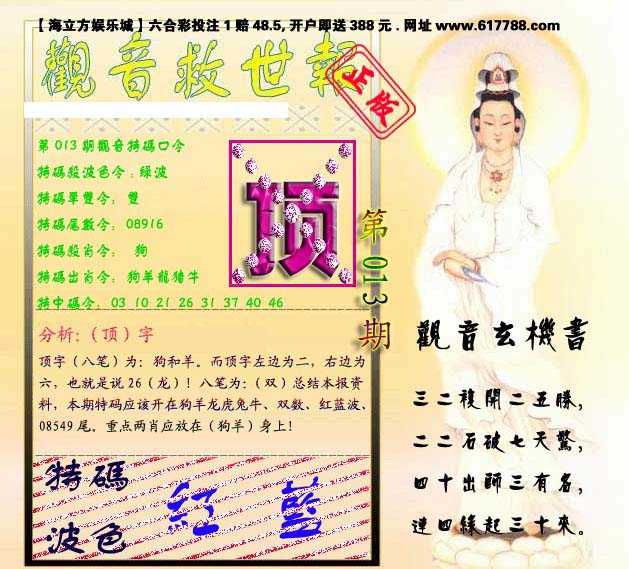 【海立方娱乐城】六合彩投注1赔48.5,开户即送388元.网址 www.617788.com
觀音救世報
正版
第013期觀音特碼口令
特碼殺波色令:綠波
特碼單雙令: 雙
特碼尾數令: 08916
特碼殺肖令: 狗
特碼出肖令: 狗羊龍猪牛
特中碼令: 03 10 21 26 31 37 40 46
顶
第013期
分析:(顶)字
顶字(八笔)为:狗和羊。而顶字左边为二,右边为
六,也就是说26(龙)!八笔为:(双)总结本报资
料,本期特码应该开在狗羊龙虎兔牛、双数、红蓝波、
08549尾。重点两肖应放在(狗羊)身上!
特碼
波色
紅 藍
觀音玄機書
三二複開二五勝,
二二石破七天驚,
四十出師三有名,
連四緣起三十來。